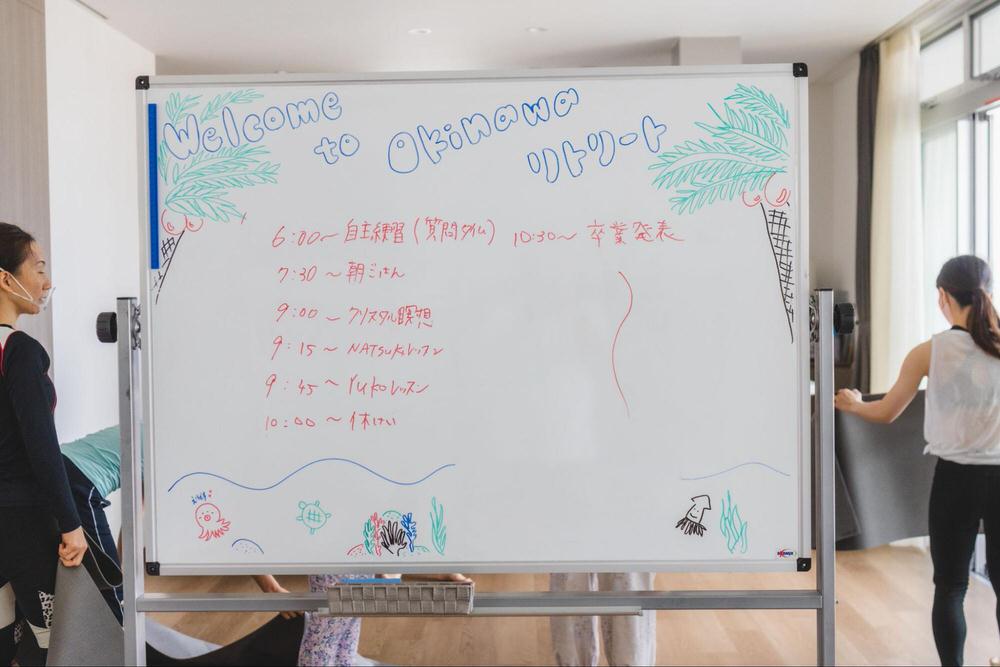 Welcome
to Okinawa
リトリート
6:00～自主練習(質問タイム)
7:30～朝ごはん
9:00～クリスタル瞑想
9:15～NATSUKiレッスン
9:45～Yukoレッスン
10:00～休けい
10:30～卒業発表